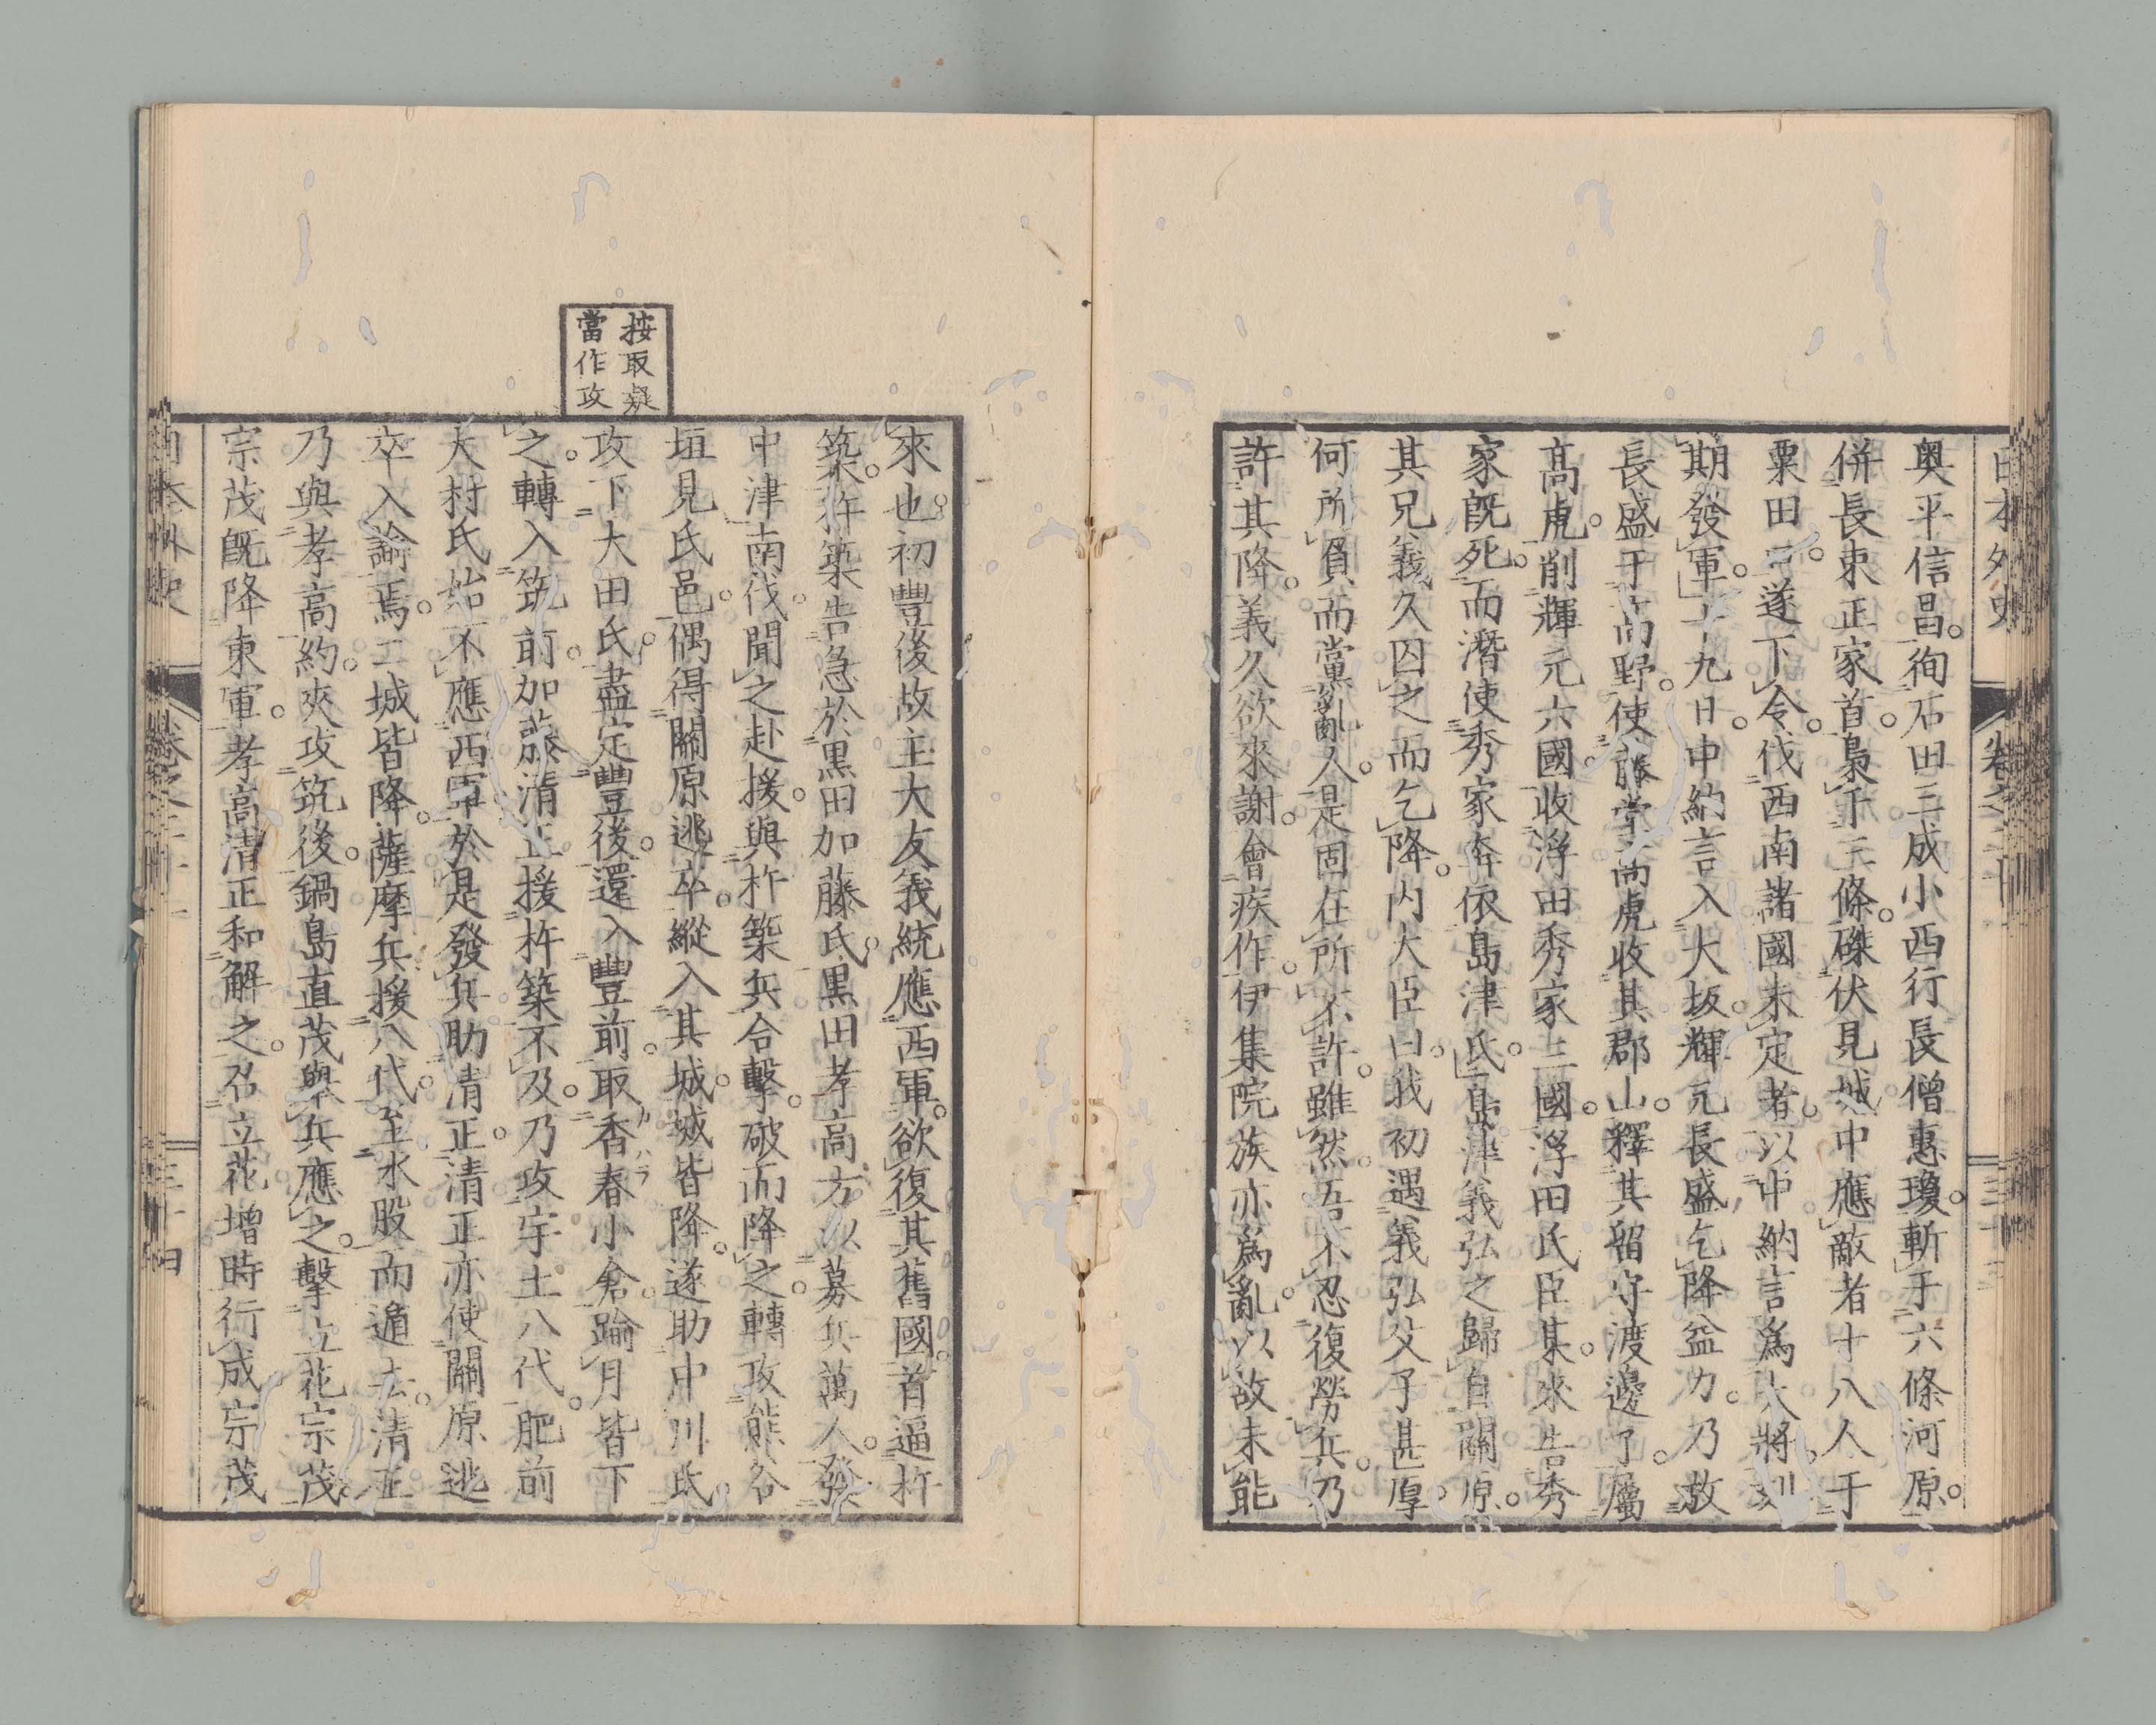 日本外史
卷之二十
奧平信昌。徇石田三成小西行長僧惠瓊。斬于六條河原。
併長束正家首。梟于三條。磔伏見城中應敵者十八人于
粟田。遂下令。伐西南諸國未定者。以中納言爲大將。刻
期發軍。十九日。中納言入大坂。輝元長盛乞降益力。乃放
長盛于高野。使藤堂高虎收其郡山。釋其留守渡邊了。屬
高虎。削輝元六國。收浮田秀家三國。浮田氏臣某。來告秀
家既死。而潛使秀家奔依島津氏。島津義弘之歸自關原。
其兄義久囚之而乞降。內大臣曰。我初遇義弘父子甚厚。
何所負而黨亂人。是固在所不許。雖然吾不忍復勞兵。乃
許其降。義久欲來謝。會疾作。伊集院族亦爲亂。以故未能
按取疑
當作攻
來也。初豐後故主大友義統應西軍。欲復其舊國。首逼杵
築。杵築告急於黑田加藤氏。黑田孝高方以募兵萬人。發
中津南伐。聞之赴援。與杵築兵合擊。破而降之。轉攻熊谷
垣見氏邑。偶得關原逃卒。縱入其城。城皆降。遂助中川氏。
攻下大田氏。盡定豐後。還入豐前。取香春小倉。踰月皆下
之。轉入筑前。加藤清正援杵築不及。乃攻宇土八代。肥前
大村氏始不應西軍。於是發兵助清正。清正亦使關原逃
卒入諭焉。二城皆降。薩摩兵援八代。至水股而遁去。清正
乃與孝高約。夾攻筑後。鍋島直茂舉兵應之。擊立花宗茂。
宗茂既降東軍。孝高清正和解之。召立花增時行成宗茂
日本外史
卷之二十
三十四